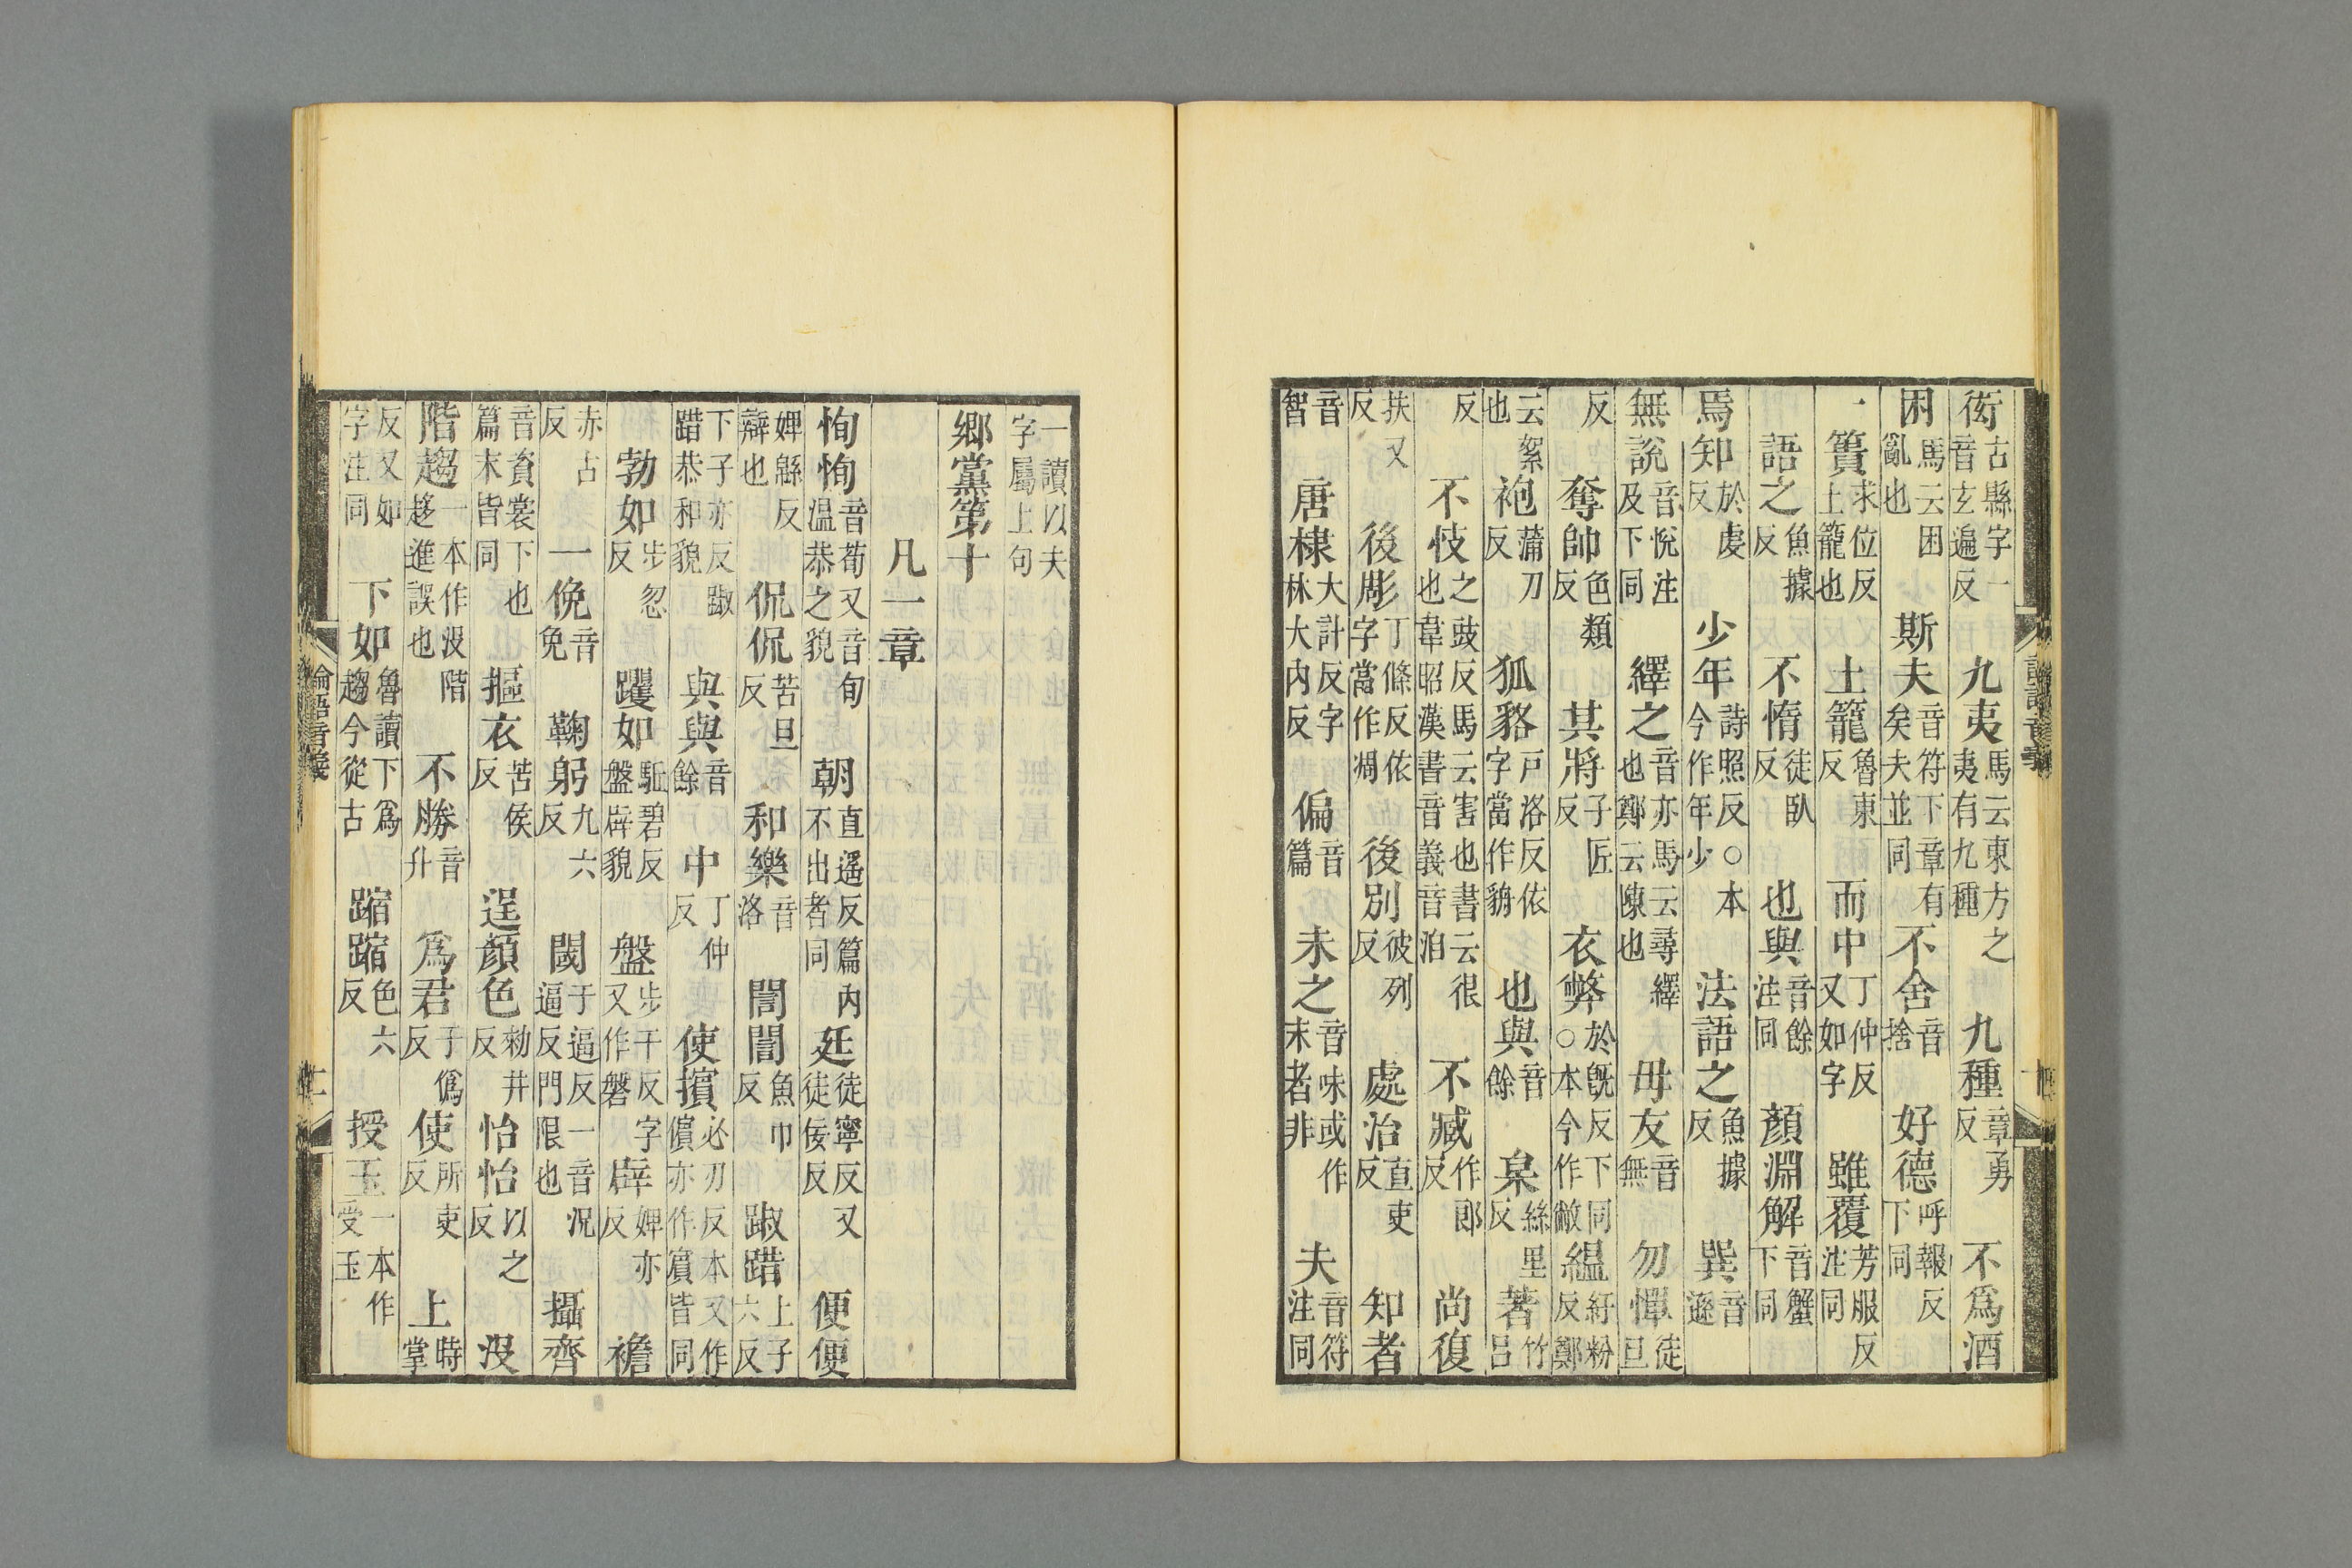 衒古縣字一音玄遍反 九夷馬云東方之夷有九種 九種章勇反 不爲酒
困馬云困亂也 斯夫音符下章有矣夫並同 不舍音捨 好德呼報反下同
一簣求位反上籠也 土籠魯東反 而中丁仲反又如字 雖覆芳服反注同
語之魚據反 不惰徒臥反 也與音餘注同 顏淵解音蟹下同
焉知於虔反 少年詩照反○本今作年少 法語之魚據反 巽音遜
無說音悅注及下同 繹之音亦馬云尋繹也鄭云陳也 毋友音無 勿憚徒旦
反 奪帥色類反 其將子匠反 衣弊於旣反下同○本今作敝 縕紆粉反鄭
云絮也 袍蒲刀反 狐貉戶洛反依字當作貈 也與音餘 枲絲里反 著竹呂
反 不忮之豉反馬云害也書云很也韋昭漢書音義音洎 不臧作郎反 尚復
扶又反 後彫丁條反依字當作凋 後別彼列反 處治直吏反 知者
音智 唐棣大計反字林大內反 偏音篇 未之音味或作末者非 夫音符注同
一讀以夫字屬上句
鄉黨第十
凡一章
恂恂音荀又音旬溫恭之貌 朝直遙反篇內不出者同 廷徒寧反又徒佞反 便便
婢緜反辯也 侃侃苦旦反 和樂音洛 誾誾魚巾反 踧踖上子六反
下子亦反踧踖恭和貌 與與音餘 中丁仲反 使擯必刃反本又作儐亦作賓皆同
勃如步忽反 躩如駈碧反盤辟貌 盤步干反字又作磐 辟婢亦反 襜
赤占反 一俛音免 鞠躬九六反 閾于逼反一音況逼反門限也 攝齊
音資裳下也篇末皆同 摳衣苦侯反 逞顏色勑井反 怡怡以之反 沒
階趨一本作沒階趨進誤也 不勝音升 爲君于僞反 使所吏反 上時掌
反又如字注同 下如魯讀下爲趨今從古 蹜蹜色六反 授玉一本作受玉
論語音義